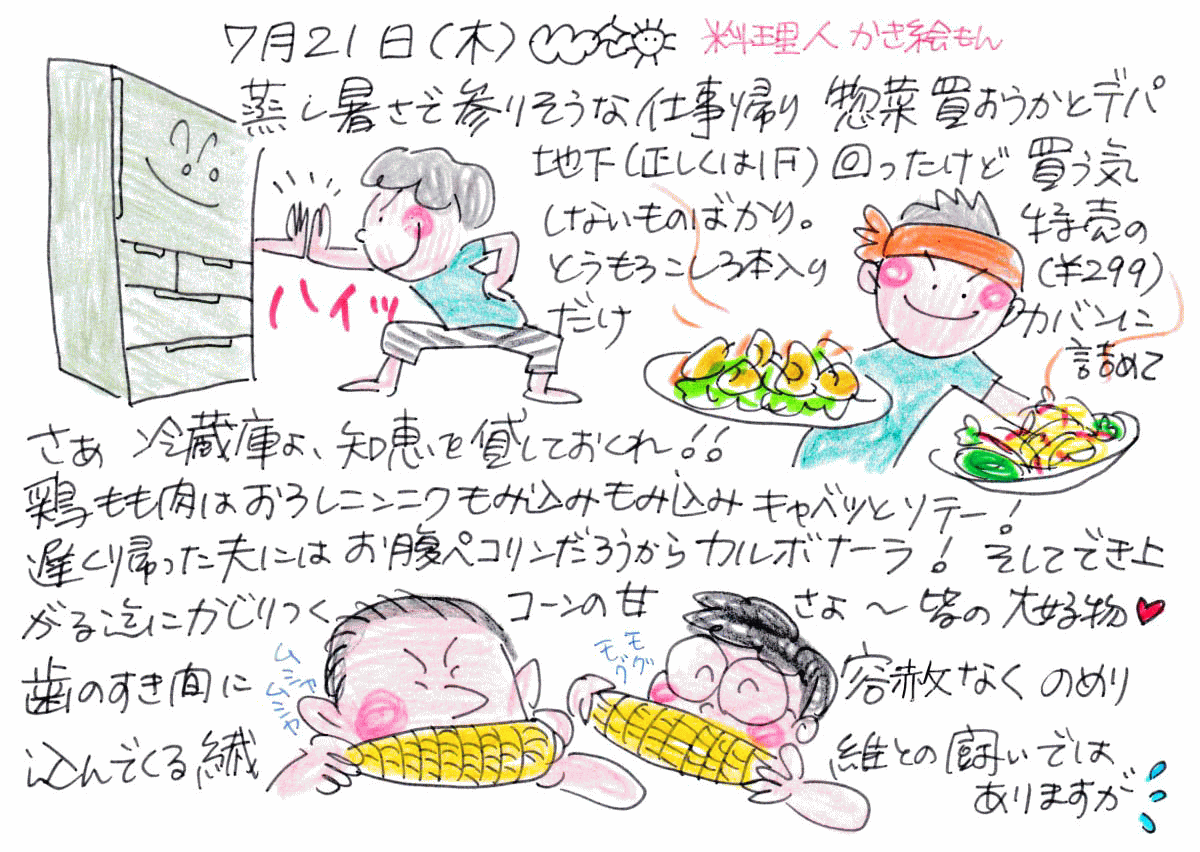 7月21日(木) 料理人 かき絵もん
蒸し暑さで参りそうな仕事帰り 惣菜買おうかとデパ
地下(正しくは1F)回ったけど 買う気
しないものばかり。 特売の
とうもろこし3本入り (¥299)
だけ カバンに
詰めて
ハイッ
さあ 冷蔵庫よ、知恵を貸しておくれ!!
鶏もも肉はおろしニンニクもみ込みもみ込み キャベツとソテー!
遅くり帰った夫には お腹ペコリンだろうから カルボナーラ! そしてでき上
がる迄にかじりつく コーンの甘 さよ〜皆の大好物♥
歯のすき間に 容赦なく のめり
ムシャムシャ
モグモグ
込んでくる繊 維との闘いでは
ありますが